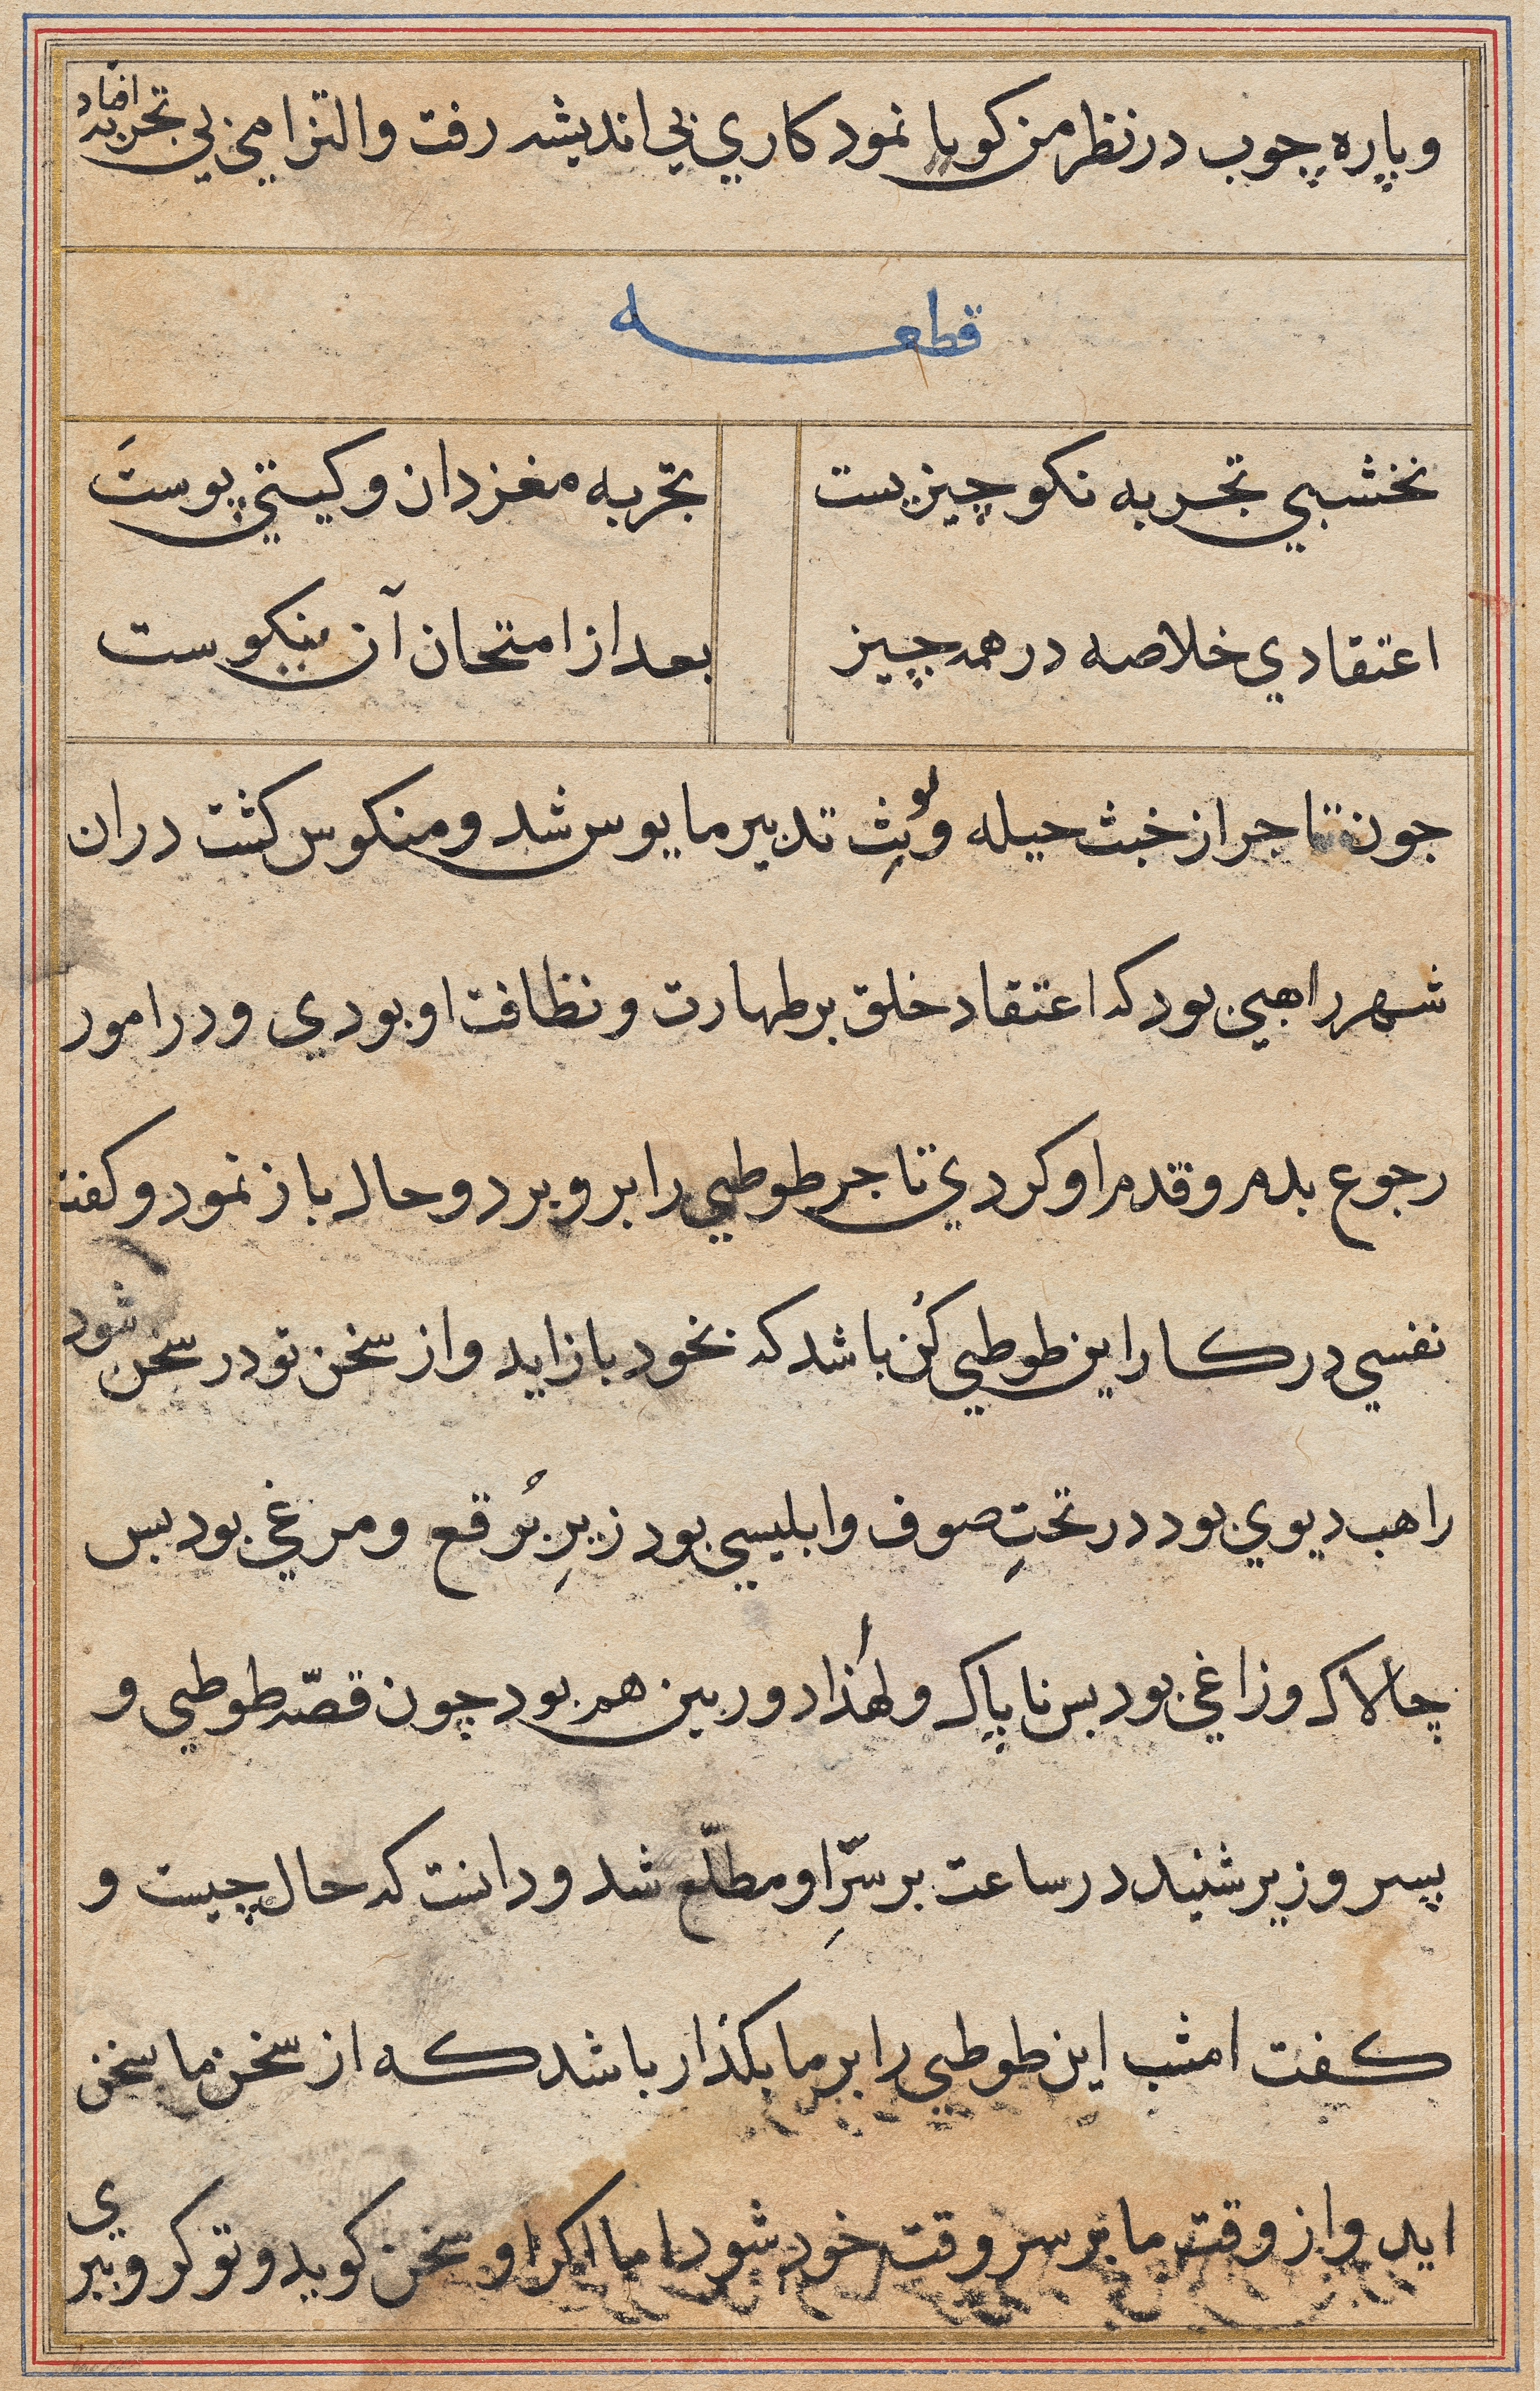 و پاره چوب در نظر من کویا نمود کاري بي اندیشه رفت و التزامي بي تجربه افتاد
قطعه
نخشبي تجربه نکو چیزیست تجربه مغز دان و کیتي پوست
اعتقادي خلاصه در همه چیز بعد از امتحان آن نیکوست
جون تاجر از خبث حیله و لوثِ تدبیر مایوس شد و منکوس کشت دران
شهر راهبي بود که اعتقاد خلق بر طهارت و نظافت او بودي و در امور
رجوع بدم و قدم او کردي تاجر طوطي را برو برد و حال باز نمود و کفت
نفسي در کار این طوطي کُن باشد که بخود باز اید و از سخن تو در سخن شود
راهب دیوي بود در تحتِ صوف و ابلیسي بود زیرِ بُرقع و مرغي بود بس
چالاک و زاغي بود بس ناپاک و لهذا دوربین هم بود چون قصّه طوطي و
پسر وزیر شنید در ساعت بر سرِّ او مطلّع شد و دانست که حال چیست و
کفت امشب این طوطي را بر ما بکذار باشد که از سخن ما سخن
اید و از وقت ما بر سر وقت خود شود اما اکر او سخن کوید و تو کرو بري